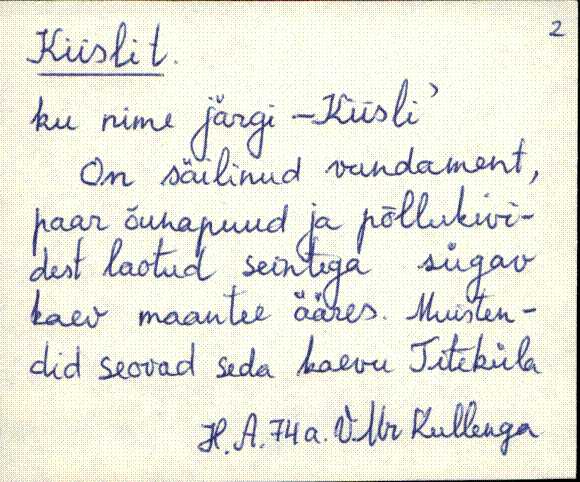 2
Kiislit.
ku nime järgi – Kiisli'
On säilinud vundament,
paar õunapuud ja põllukivi-
dest laotud seintega sügav
kaev maantee ääres. Muisten-
did seovad seda kaevu Titeküla
H. A. 74 a. V.Mr Kullenga